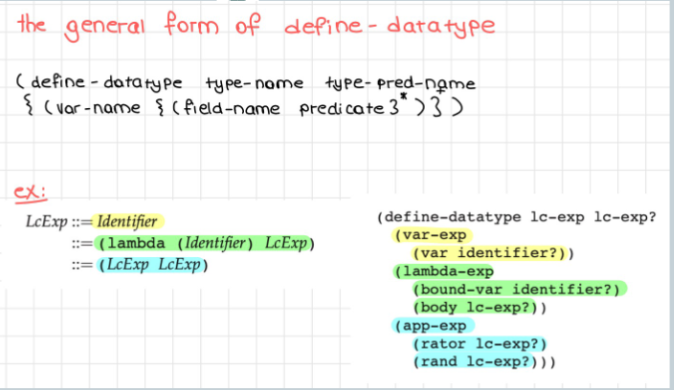 the general form of define-datatype
(define-datatype type-name type-pred-name
{(var-name {(field-name predicate}*)})
ex:
LcExp ::= Identifier
::= (lambda (Identifier) LcExp)
::= (LcExp LcExp)
(define-datatype lc-exp lc-exp?
(var-exp
(var identifier?))
(lambda-exp
(bound-var identifier?)
(body lc-exp?))
(app-exp
(rator lc-exp?)
(rand lc-exp?)))